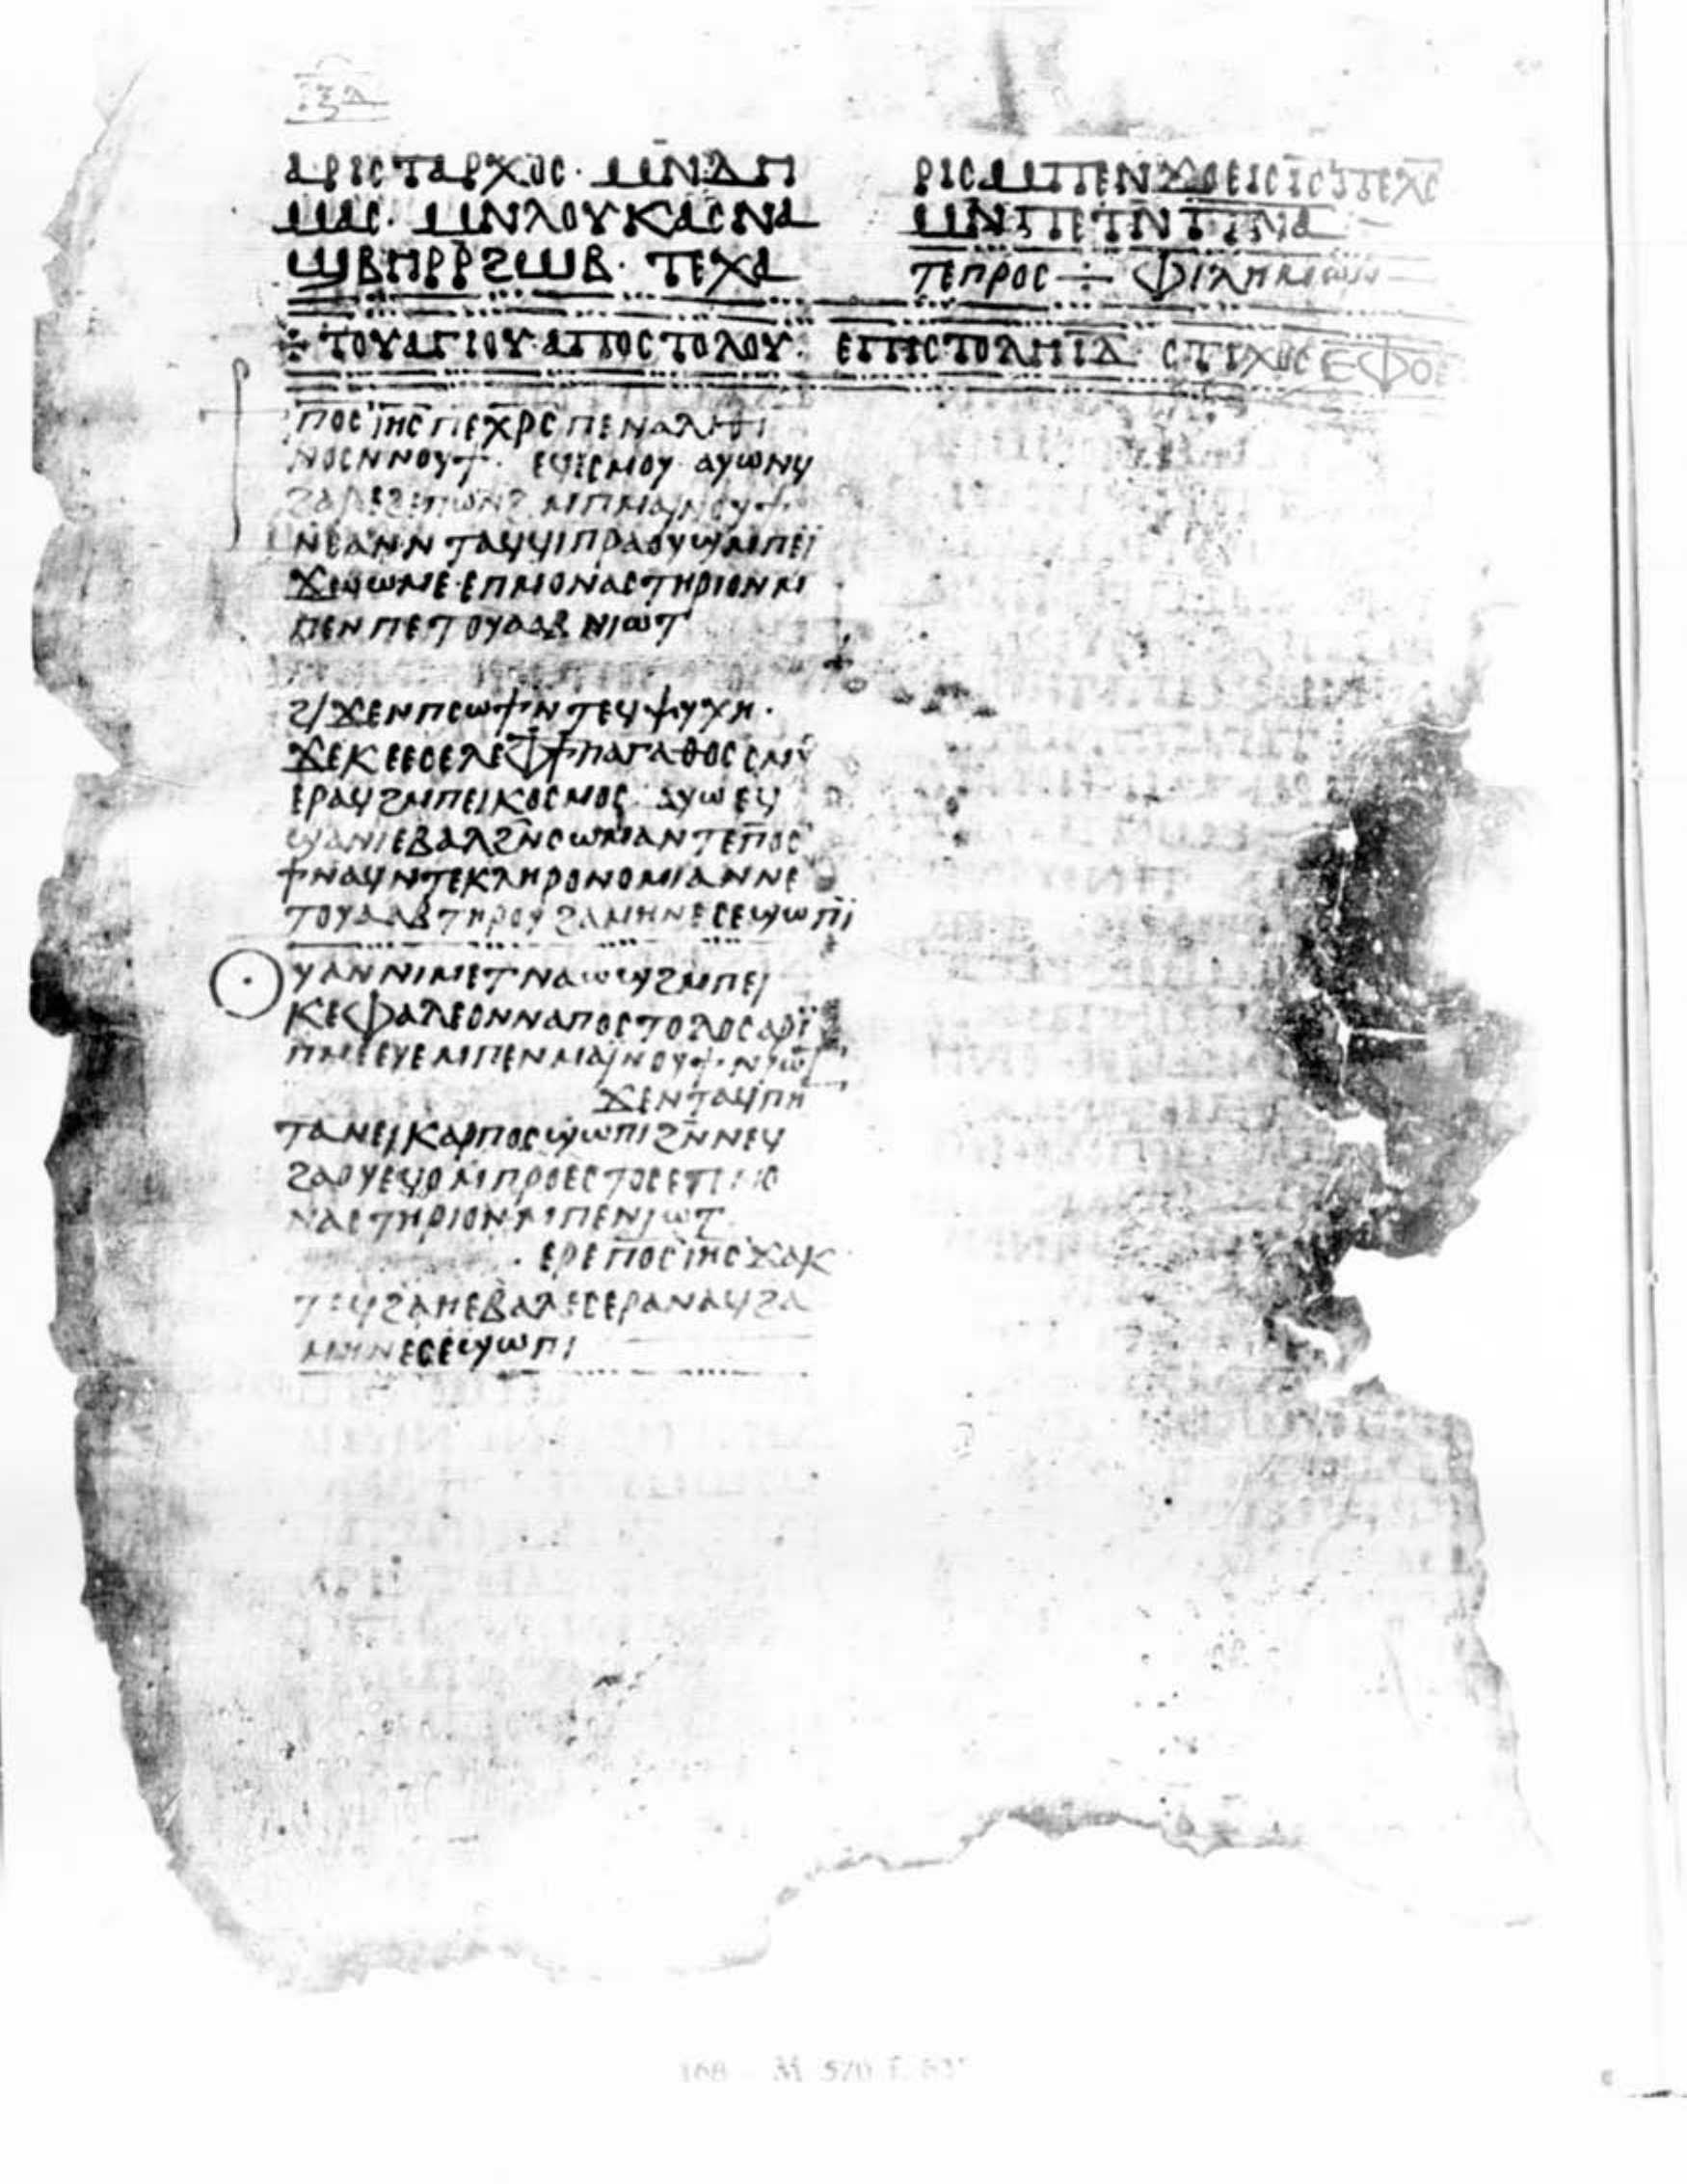 ⲁⲣⲓⲥⲧⲁⲣⲭⲟⲥ· ⲙⲛⲇⲏ
ⲙⲁⲥ· ⲙⲛⲗⲟⲩⲕⲁⲥⲛⲁ
ϣⲃⲏⲣⲣϩⲱⲃ· ⲧⲉⲭⲁ
ⲣⲓⲥⲙⲡⲉⲛϫⲟⲉⲓⲥⲓ̅ⲥ̅ⲡⲉⲭ̅ⲥ̅
ⲙⲛⲡⲉⲧⲛⲡ̅ⲛ̅ⲁ̅
ⲧⲉⲡⲣⲟⲥ ÷ ⲫⲓⲗⲏⲙⲱⲛ
ⲧⲟⲩⲁⲅⲓⲟⲩ·ⲁⲡⲟⲥⲧⲟⲗⲟⲩ· ⲉⲡⲓⲥⲧⲟⲗⲏⲓ̅ⲇ̅ ⲥⲧⲓⲭⲟⲥ ⲉ̅ⲫ̅ⲟ̅ⲉ̅
ⲡ̅ⲟ̅ⲥ̅ ⲓ̅ⲏ̅ⲥ̅ ⲡⲉⲭ̅ⲣ̅ⲥ̅ ⲡⲉⲛⲁⲗⲏⲑⲓ
ⲛⲟⲥⲛⲛⲟⲩϯ· ⲉϥⲉⲥⲙⲟⲩ ⲁⲩⲱⲛϥ
ϩⲁⲣⲉϩⲉⲡⲱⲛϩ ⲙⲡⲙⲁⲓⲛⲟⲩϯ·
ⲛⲥⲁⲛⲛ ⲧⲁϥϥⲓⲡⲣⲁⲟⲩϣⲙⲡⲉⲓ
ϫⲱⲱⲙⲉ·ⲉⲡⲙⲟⲛⲁⲥⲧⲏⲣⲓⲟⲛⲙ
ⲡⲉⲛⲡⲉⲧⲟⲩⲁⲁⲃ ⲛⲓⲱⲧ
ϩ/ϫⲉⲛⲡⲥⲱϯⲛⲧⲉϥⲯⲩⲭⲏ·
ϫⲉⲕⲉⲉⲣⲉⲗⲉⲫϯⲡⲁⲅⲁⲑⲟⲥ ⲥⲙⲩ
ⲉⲣⲁϥϩⲙⲡⲉⲓⲕⲟⲥⲙⲟⲥ ⲁⲩⲱⲉϥ
ϣⲁⲛⲓⲉⲃⲁⲗϩⲛⲥⲱⲙⲁⲛⲧⲉⲡ̅ⲟ̅ⲥ̅
ϯⲛⲁϥⲛⲧⲉⲕⲗⲏⲣⲟⲛⲟⲙⲓⲁⲛⲛⲉ
ⲧⲟⲩⲁⲁⲃⲧⲏⲣⲟⲩϩⲁⲙⲏⲛⲉⲥⲉϣⲱⲡⲓ
ⲟⲩⲁⲛⲛⲓⲙⲉⲧⲛⲁⲱϣϩⲙⲡⲉⲓ
ⲕⲉⲫⲁⲗⲉⲟⲛⲛⲁⲡⲟⲥⲧⲟⲗⲟⲥⲁⲣⲓ
ⲡⲙⲉⲉⲩⲉⲙⲡⲉⲛⲙⲁⲓⲛⲟⲩϯ·ⲛⲓⲱⲧ
ϫⲉⲛⲧⲁϥⲡⲏ
ⲧⲁⲛⲉⲓⲕⲁⲣⲡⲟⲥϣⲱⲡⲓϩⲛⲛⲉϥ
ϩⲁⲟⲩⲉϥⲟⲙⲡⲣⲟⲉⲥⲧⲟⲥⲉⲡⲙⲟ
ⲛⲁⲥⲧⲏⲣⲓⲟⲛⲙⲡⲉⲛⲓⲱⲧ
ⲉⲣⲉⲡ̅ⲟ̅ⲥ̅ ⲓ̅ⲏ̅ⲥ̅ ϫⲱⲕ
ⲧⲉϥϩⲁⲏⲉⲃⲁⲗⲉⲥⲉⲣⲁⲛⲁϥϩⲁ
ⲙⲏⲛⲉⲥⲉϣⲱⲡⲓ